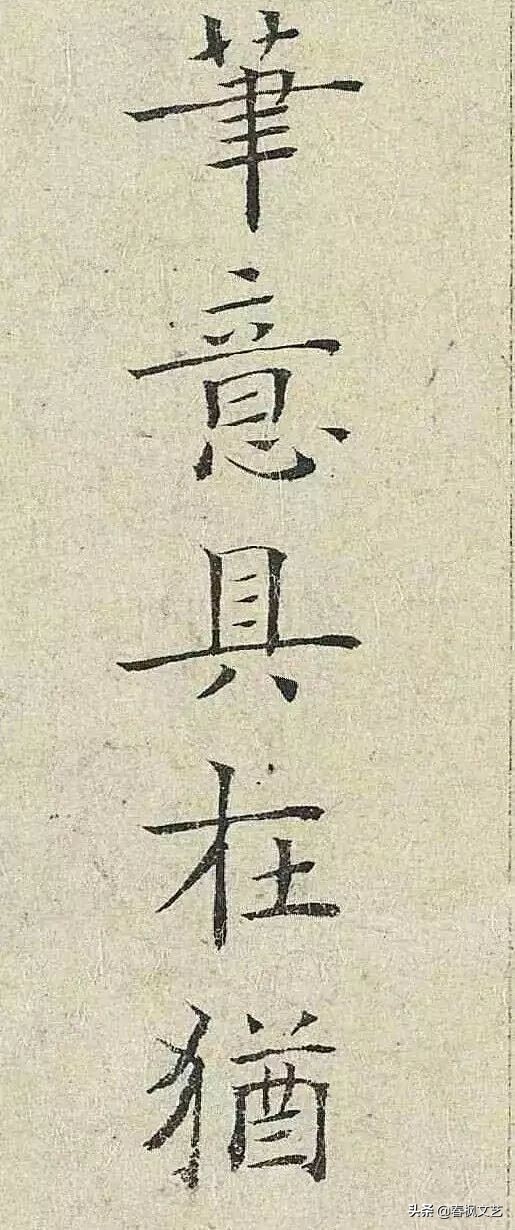 筆意具在猶
头条 @春枫文艺